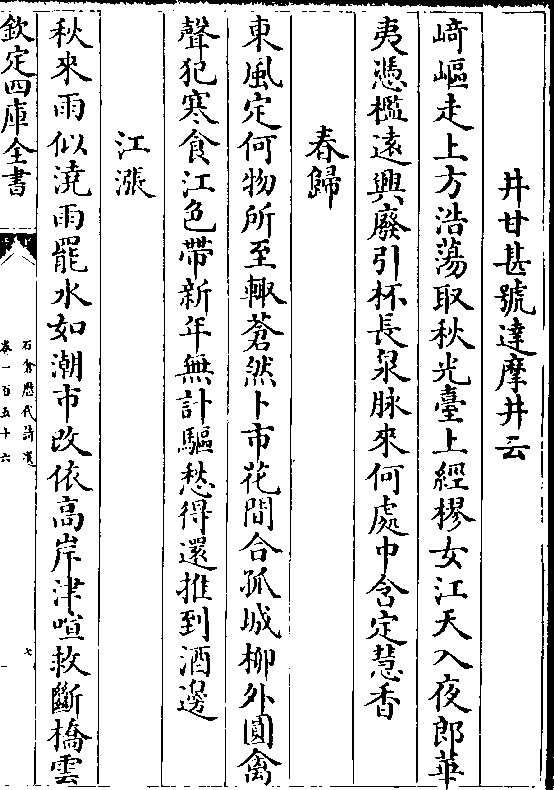 井甘甚號達摩井云
﨑嶇走上方浩蕩取秋光臺上經樛女江天入夜郎華
夷憑檻遠興廢引杯長泉脉來何處中含定慧香
春歸
東風定何物所至輙蒼然卜市花間合孤城柳外圓禽
聲犯寒食江色帶新年無計驅愁得還推到酒邊
江漲
秋來雨似澆雨罷水如潮市改依高岸津喧救斷橋雲
欽定四庫全書
石倉歷代詩選
卷一百五十六
七